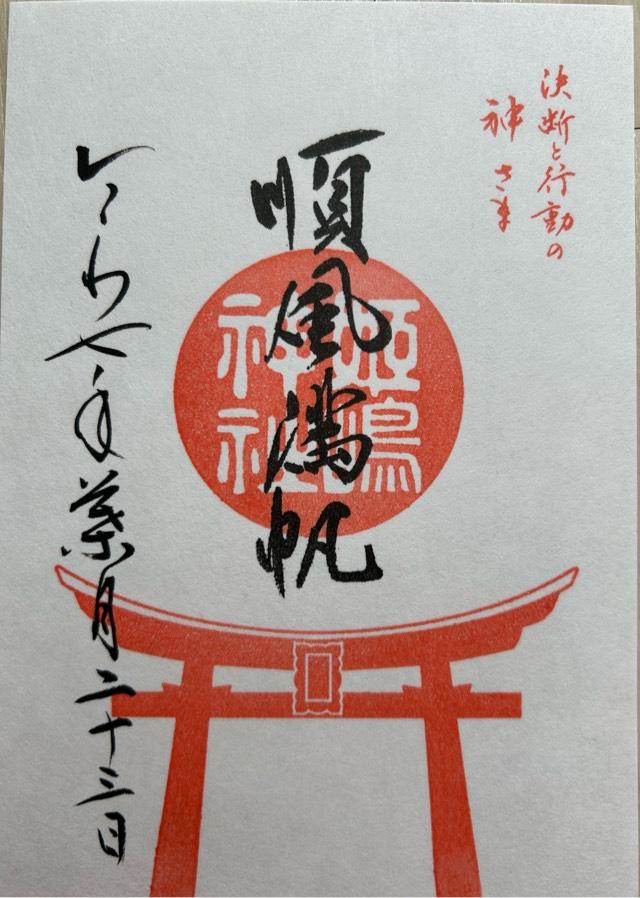 決断と行動の
神さま
順風満帆
姫嶋
神社
令和七年葉月二十三日